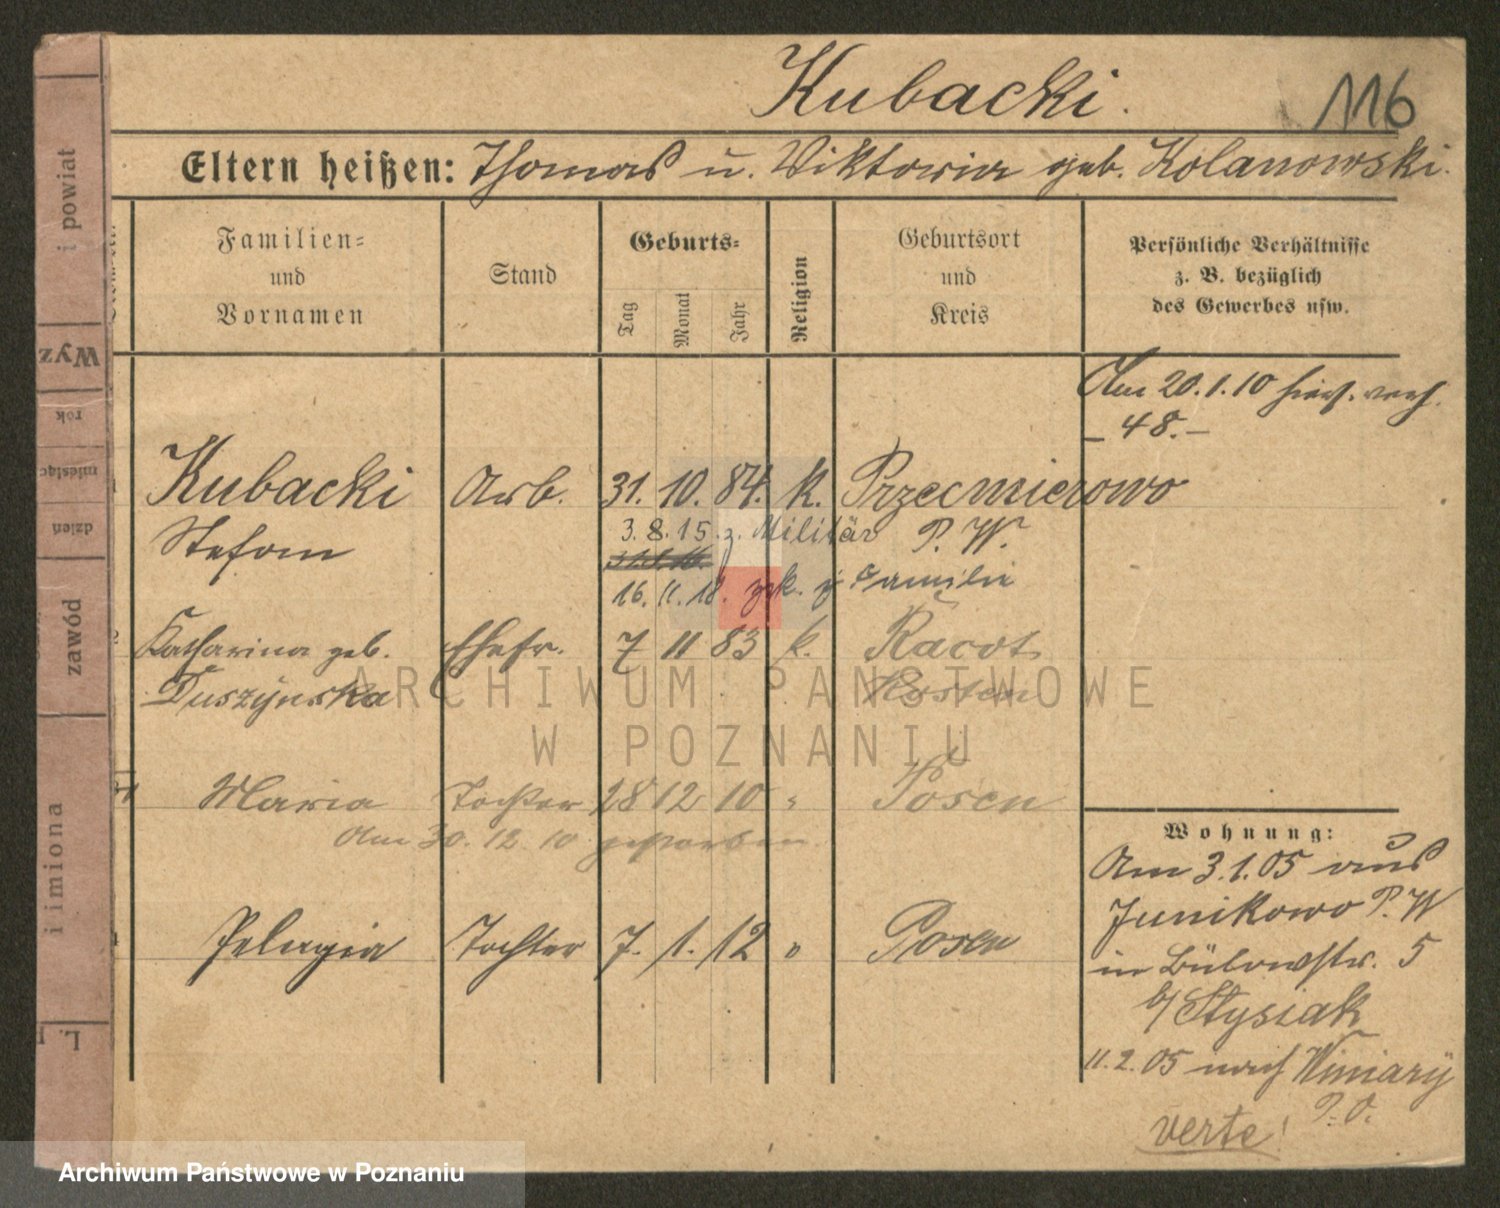 Kubacki.
116
Eltern heißen: Thomas u. Viktoria geb. Kolanowski.
Familien-
und
Vornamen
Stand
Geburts-
Tag
Monat
Jahr
Religion
Geburtsort
und
Kreis
Persönliche Verhältnisse
z. B. bezüglich
des Gewerbes usw.
Am 20.1.10 hier verh.
– 48. –
Kubacki Arb. 31. 10. 84. k. Przecmierowo
Stefan 3. 8. 15. z. Militär P. W.
16. 11. 18. zrk. z Familie
Katharina geb. Ehefr. 7 11 83 k. Racot
Duszynska Kosten
Maria Tochter 28 12 10 " Posen
Am 30. 12. 10 gestorben.
Pelagia Tochter 7. 1. 12 " Posen
Wohnung:
Am 3.1.05 aus
Junikowo P. W
in Bülowstr. 5
b/ Stysiak
11.2.05 nach Winiary
P. O.
verte!
i powiat
Wyz
rok
miesiąc
dzień
zawód
i imiona
L. p
ARCHIWUM PAŃSTWOWE
W POZNANIU
Archiwum Państwowe w Poznaniu